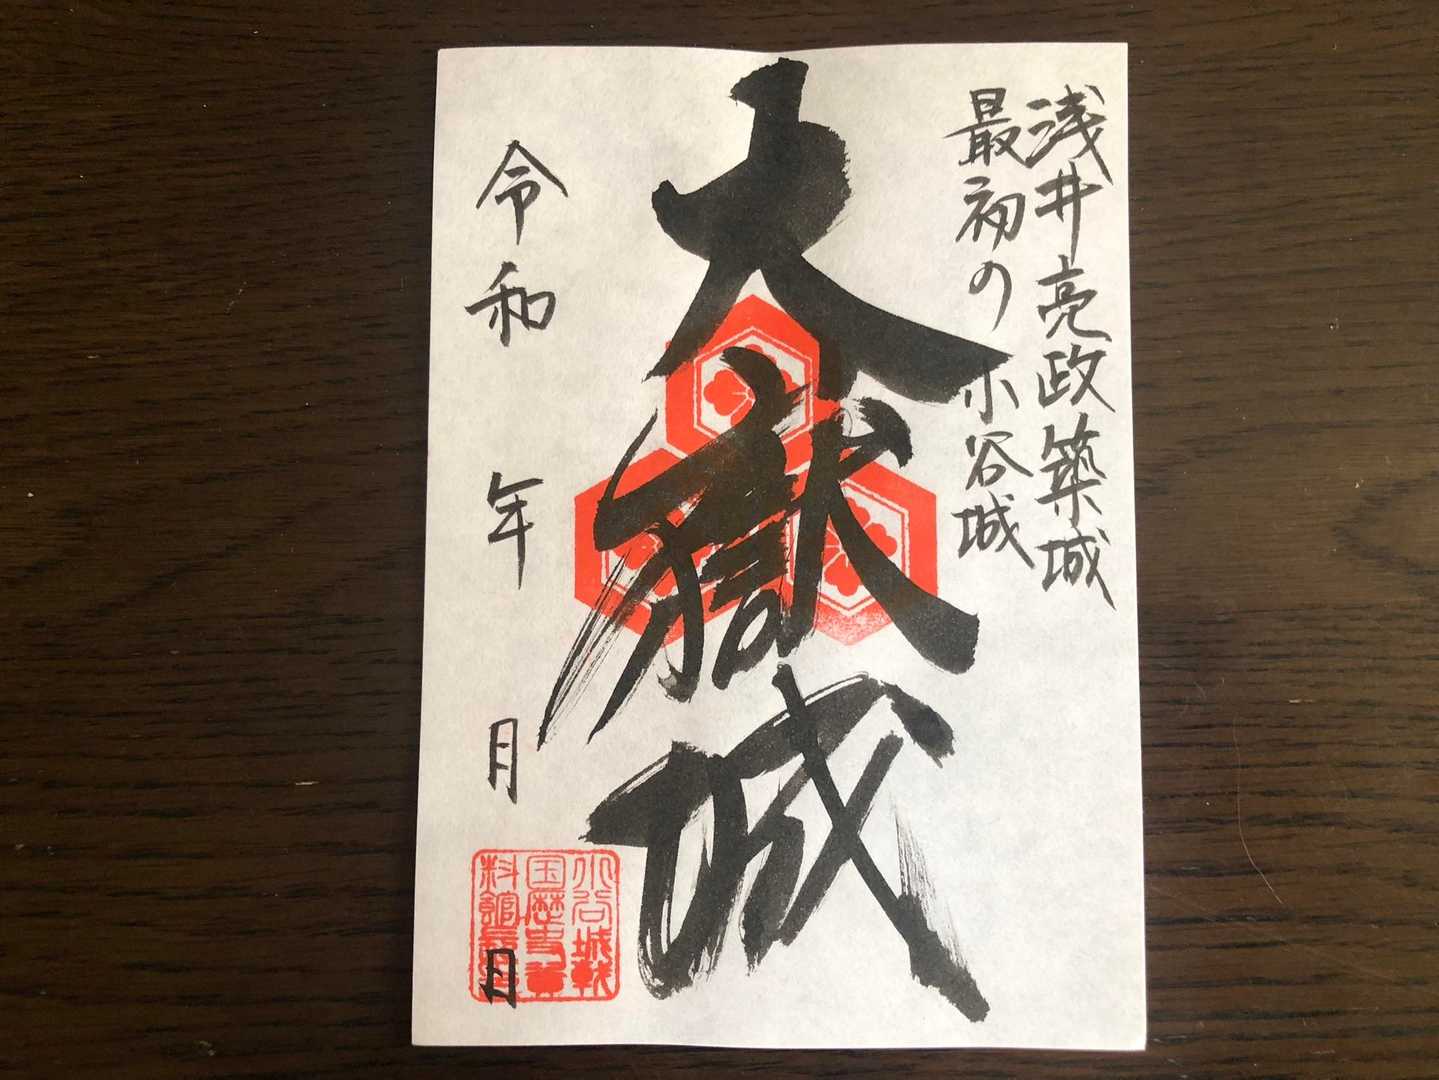 浅井亮政築城
最初の小谷城
大嶽城
令和 年 月 日
小谷城戦
国歴史資
料館